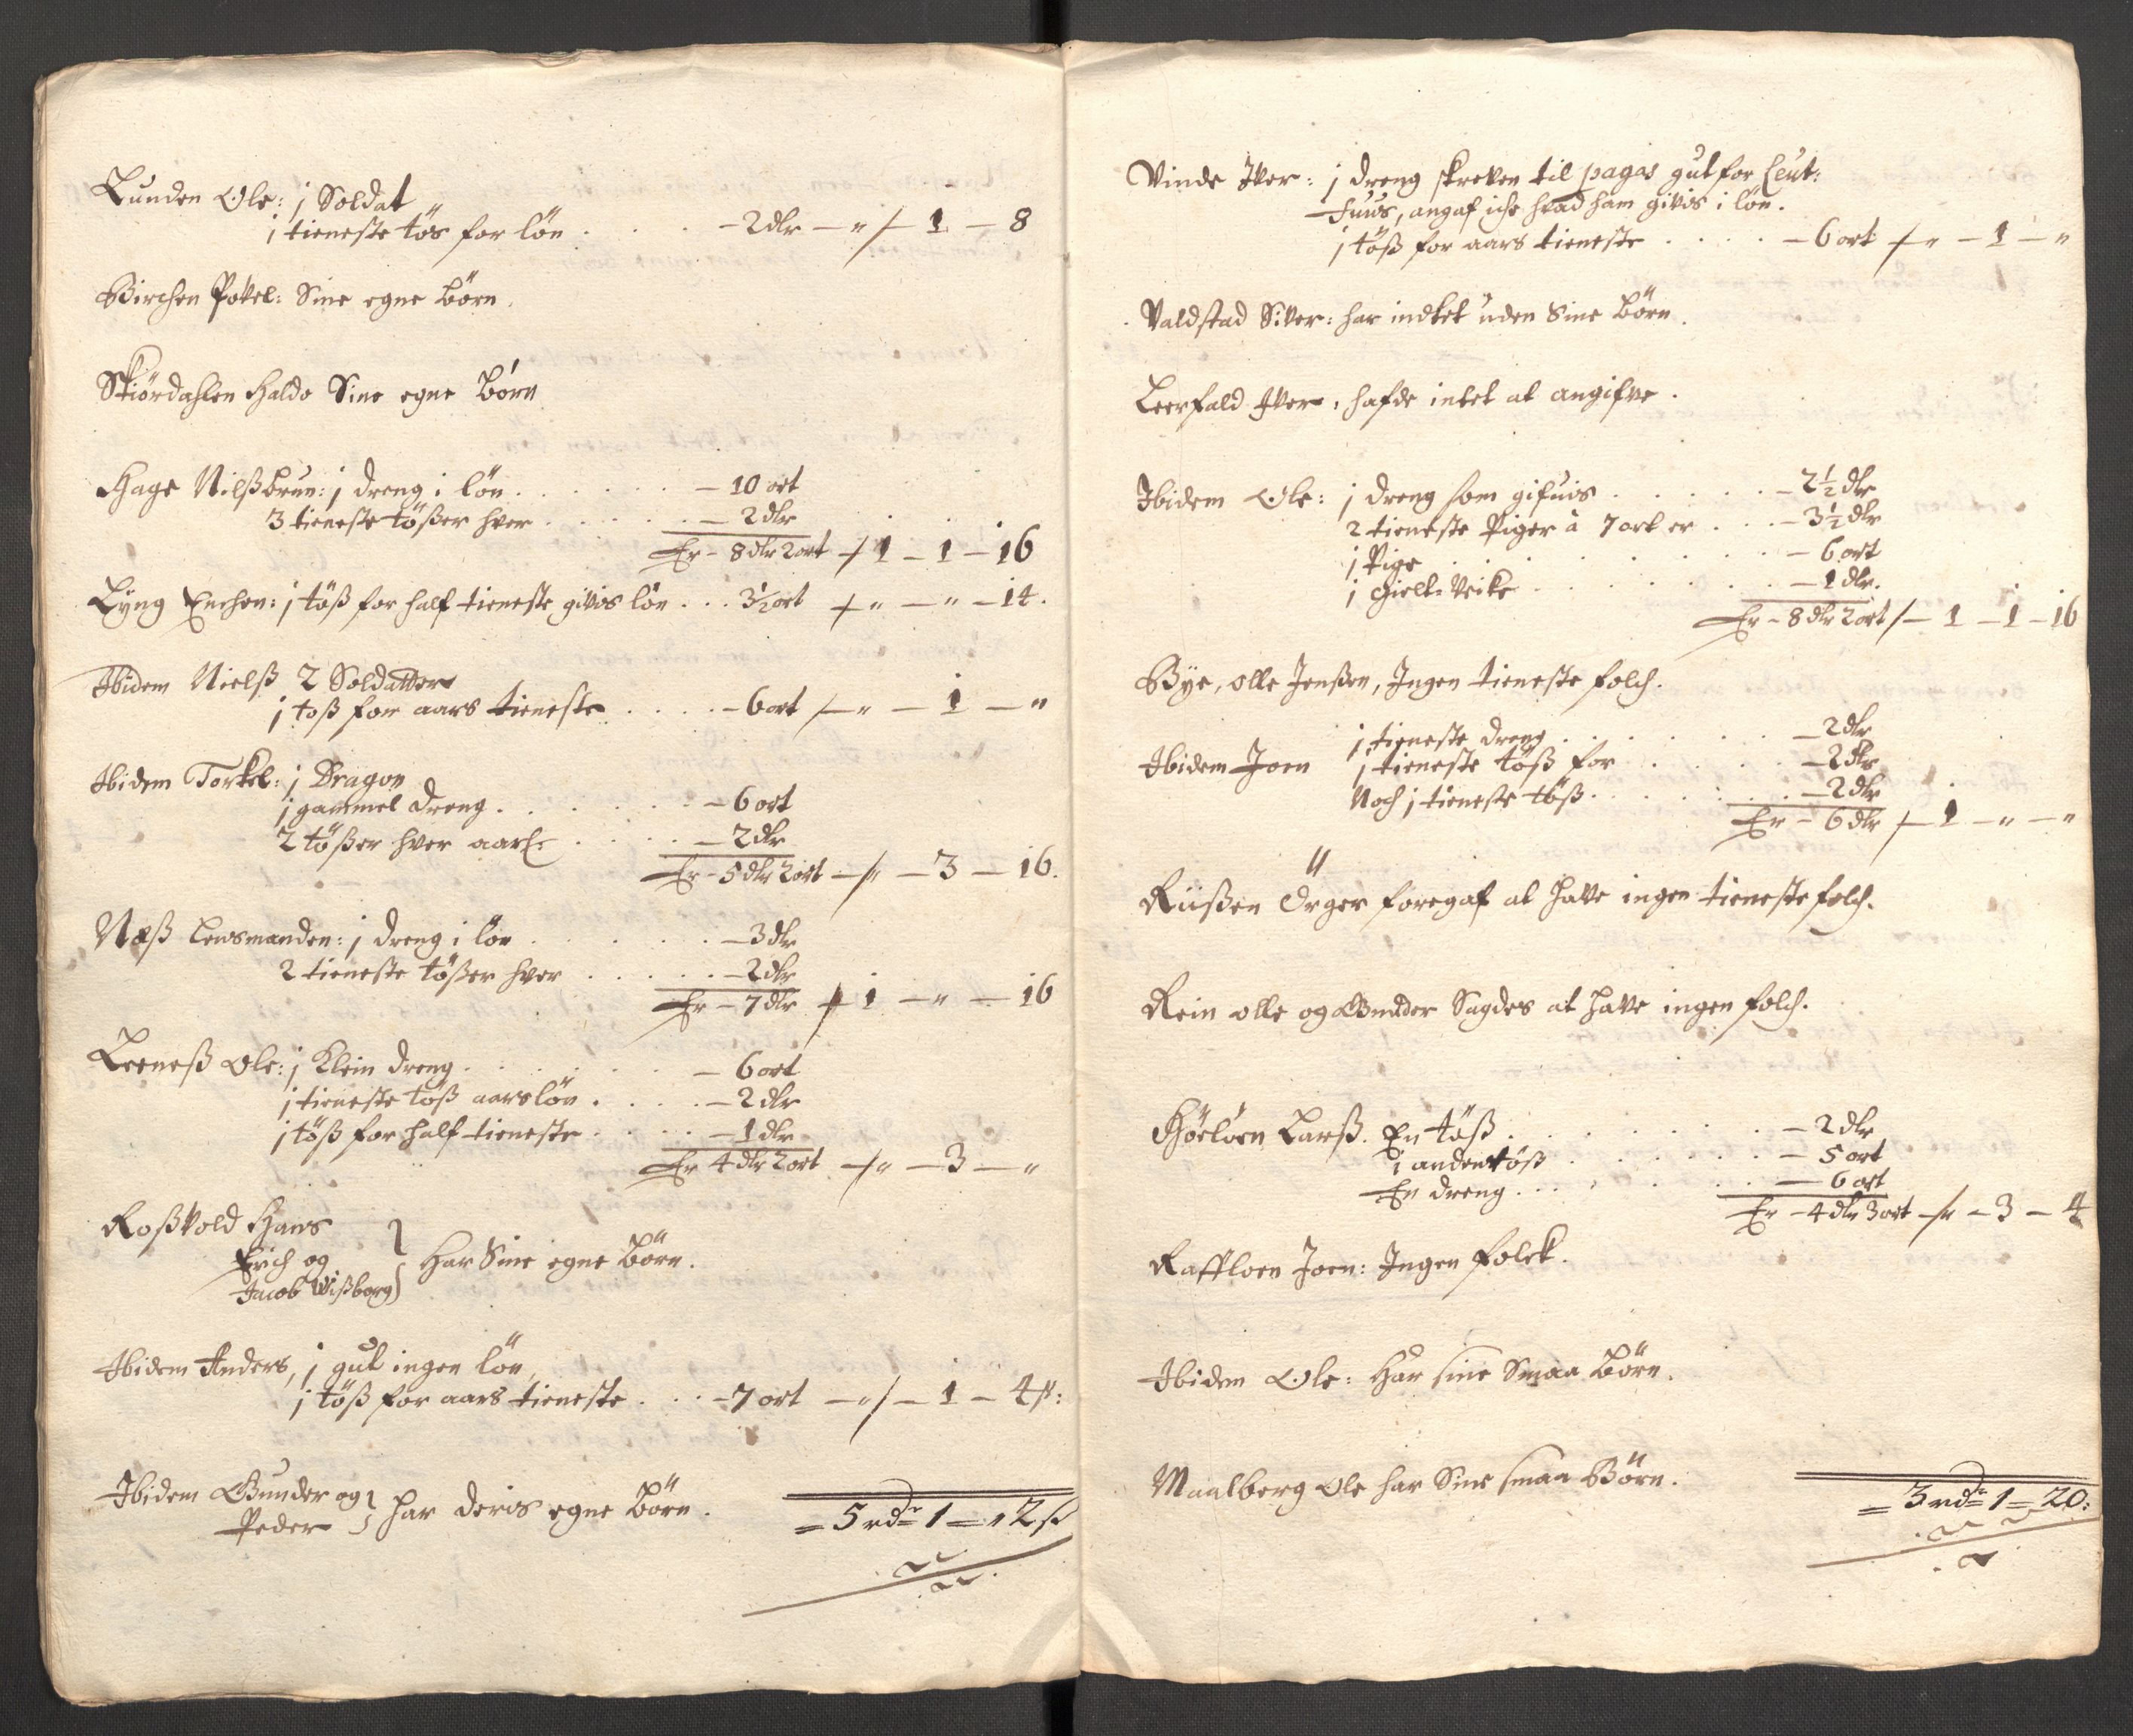 Lunden Ole: j Soldat
i tieneste tös for lön . . . - 2 dlr - " /- 1 - 8
Birchen Povel: Sine egne Börn.
Skiördahlen Haldo Sine egne Börn
Hage Nilß brun: j dreng i lön . . . . . . - 10 ort
3 tieneste tößer hver . . . . . - 2 dlr
Er - 8 dlr 2 ort -/ 1 - 1 - 16
Lyng Enchen: j töß for half tieneste givis lön . . . 3½ ort -/ " - " - 14.
Ibidem Nielß 2 Soldatter
j töß for aars tieneste . . . . - 6 ort /- " - 1 - "
Ibidem Torkel: j Dragon
j gammel dreng . . . . . . - 6 ort
2 tößer hver aarl: . . . . - 2 dlr
Er - 5 dlr 2 ort -/ " - 3 - 16.
Næß Lensmanden: j dreng i lön . . . . . . - 3 dlr
2 tieneste tößer hver . . . . . - 2 dlr
Er - 7 dlr -/ 1 - " - 16
Leeneß Ole: j Klein dreng . . . . . . - 6 ort
j tieneste töß aars lön . . . . - 2 dlr
j töß for half tieneste . . . . - 1 dlr
Er 4 dlr 2 ort -/ " - 3 - "
Roßvold Hans
Erich og } Har Sine egne Börn.
Jacob Wißborg
Ibidem Anders, j gut ingen lön,
j töß for aars tieneste . . . - 7 ort - " / - 1 - 4 ß:
Ibidem Gunder og
Peder } har deris egne Börn.
= 5 rdr 1 = " 2 ß
Vinde Iver: j dreng skreven til pagas gut for Leut:
Fuus, angaf iche hvad ham givis i lön.
j töß for aars tieneste . . . . - 6 ort /- " - 1 - "
Valdstad Siver: har indtet uden Sine Börn.
Leerfald Iver, hafde intet at angifve.
Ibidem Ole: j dreng som gifuis . . . . . - 2½ dlr
2 tieneste Piger à 7 ort er . . . - 3½ dlr
j Pige . . . . . . . - 6 ort
j gielt-Veike . . . . . . - 1 dlr.
Er - 8 dlr 2 ort /- 1 - 1 - 16
Bye, olle Jenßen, Ingen tieneste folch.
j tieneste dreng . . . . . . - 2 dlr
Ibidem Joen j tieneste töß for . . . . - 2 dlr
Noch j tieneste töß . . . . . . - 2 dlr
Er - 6 dlr /- 1 - " - "
Riißen Örger foregaf at have ingen tieneste folch.
Rein olle og Gunder Sagdes at have ingen folch.
Höeloen Larß. En töß . . . . . . . - 2 dlr
i anden töß . . . . . . - 5 ort
En dreng . . . . . . - 6 ort
Er - 4 dlr 3 ort -/ " - 3 - 4
Raffloen Joen: Ingen folck.
Ibidem Ole: Har sine Smaa Börn.
Maalberg Ole har Sine smaa Börn.
= 3 rdr 1 = 20: